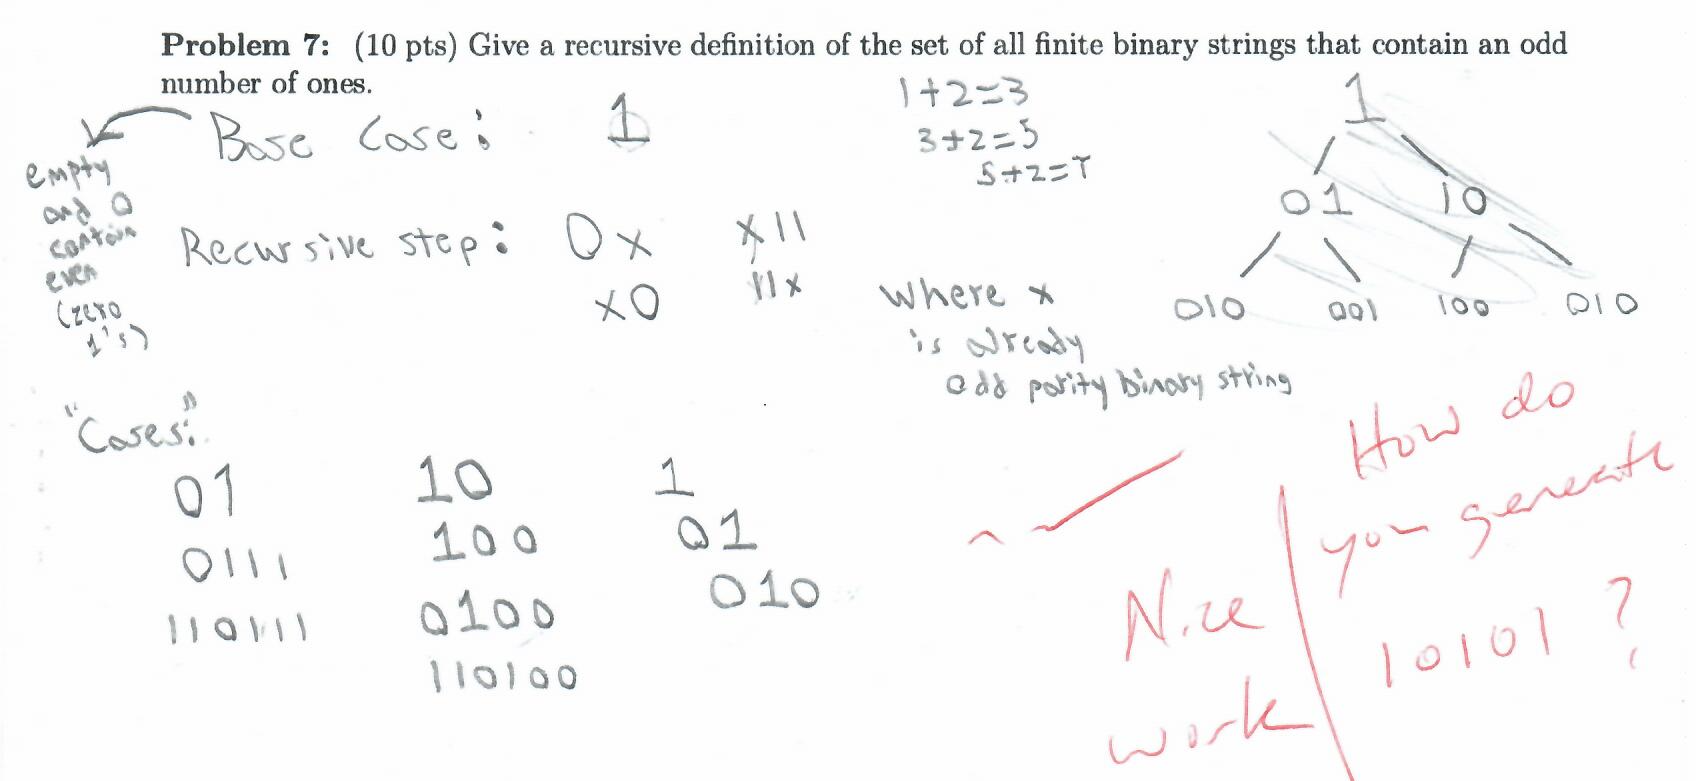 Problem 7: (10 pts) Give a recursive definition of the set of all finite binary strings that contain an odd
number of ones.
Base Case: 1
empty
and 0
contain
even
(zero
1's)
Recursive step: 0x x11
x0 11x
where x
is already
odd parity binary string
1+2=3
3+2=5
5+2=7
1
01 10
010 001 100 010
"Cases:"
01 10 1
0111 100 01
110111 0100 010
110100
Nice
work
How do
you generate
10101?